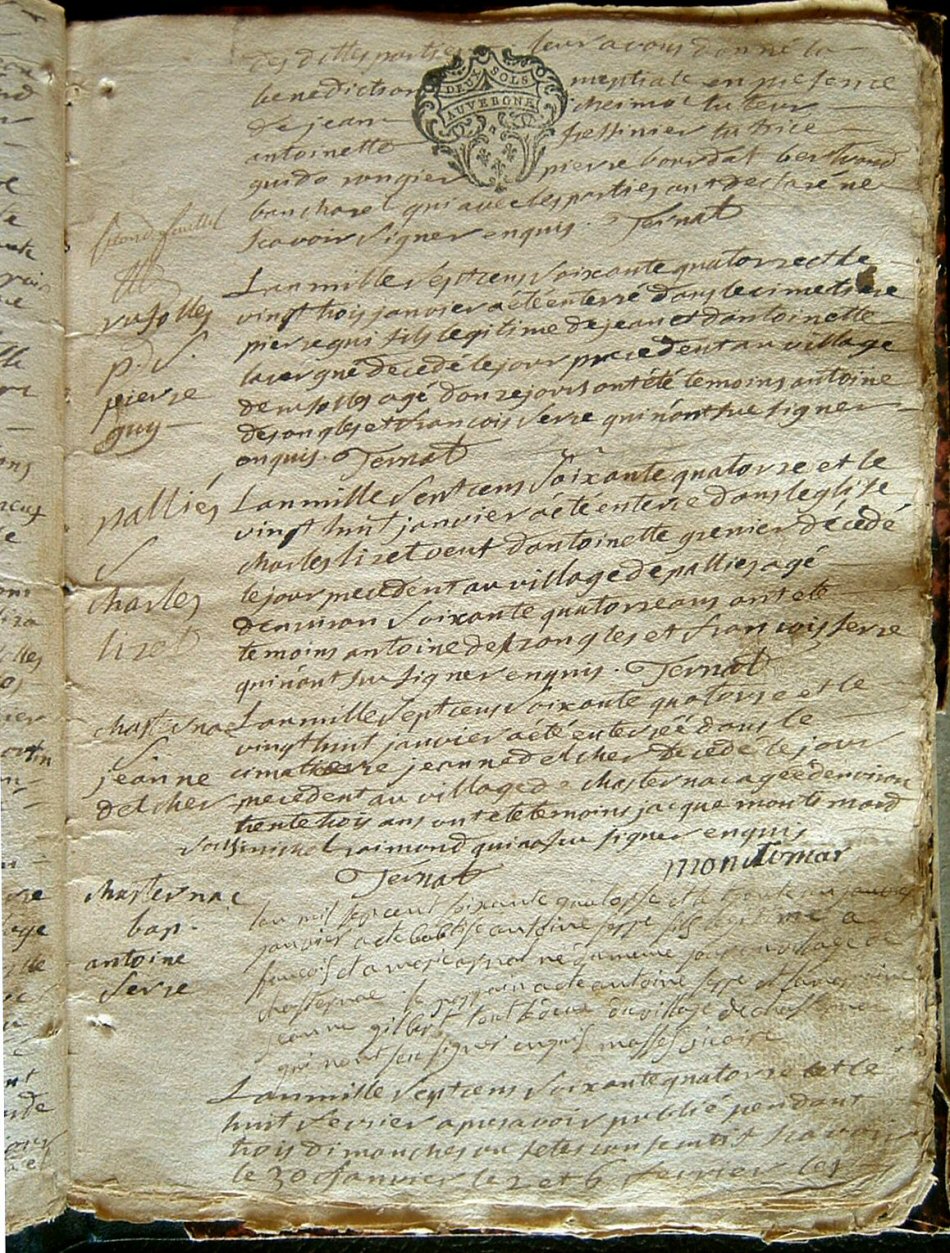 des dittes parties leur avons donné la
benediction nuptiale en presence
de jean cheimol tuteur
antoinette tutrice
guido rongier pierre bourdal bertrand
bancharel qui avec les parties ont declaré ne
scavoir signer enquis. Ternat
second feuillet
DEUX SOLS
AUVERGNE
rusolles
p. S.
pierre
guy
L'an mille sept cens soixante quatorze et le
vingt trois janvier a été enterré dans le cimetiere
pierre gui fils legitime de jean et d'antoinette
lavergne decedé le jour precedent au village
de rusolles agé d'onze jours ont été temoins antoine
desongles et francois serre qui n'ont sçu signer
enquis. Ternat
palliés
S
charles
lizet
L'an mille sept cens soixante quatorze et le
vingt huit janvier a été enterré dans l'eglise
charles lizet veuf d'antoinette grenier décédé
le jour precedent au village de pallies agé
d'environ soixante quatorze ans ont eté
temoins antoine desongles et francois serre
qui n'ont sçu signer enquis. Ternat
chasternac
S
jeanne
delcher
L'an mille sept cens soixante quatorze et le
vingt huit janvier a été enterrée dans le
cimatiere jeanne delcher décédé le jour
precedent au village de chasternac agée d'environ
trente trois ans ont eté temoins jacque montimard
soussigné michel raimond qui n'a sçu signer enquis
Ternat montimar
chasternac
bap.
antoine
serre
l'an mil sept cent soixante quatosse et le trente un janvier
janvier a ete babtisé antoine serre fils legitime a
francois et a marie né du meme jour au village de
chasternac le parrain a eté antoine serre et la marraine
jeanne gilbert tout deux du village de chasternac
qui n'ont sçu signer enquis vicaire
L'an mille sept cens soixante quatorze et le
huit fevrier apres avoir publié pendant
trois dimanches ou fetes consecutif scavoir
le 30 janvier le 2 et 6 fevrier les